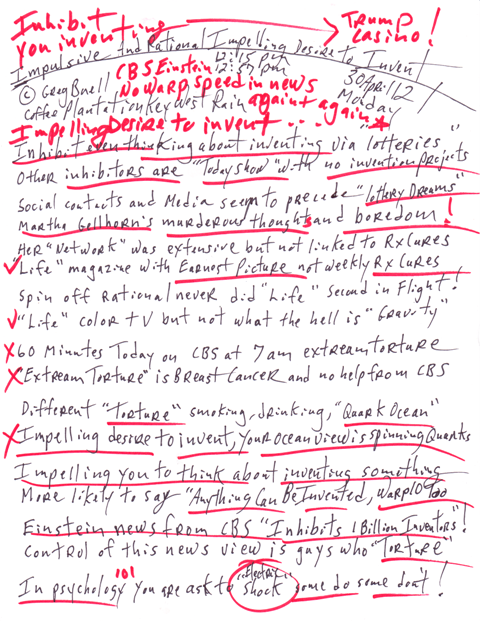 Inhibit
you inventing → Trump
Casino!
Impulsive and Rational Impelling Desire to Invent
12:15 pm
© Greg Buell CBS Einstein 12:37 pm 30 April 12
No warp speed in news Monday
Coffee Plantation Key West Rain again + again
Impelling Desire to invent . . .
Inhibit even thinking about inventing via lotteries,
Other inhibitors are "Today show" with no invention projects
Social contacts and Media seem to precede "lottery Dreams"
Martha Gellhorn's murderous thoughts and boredom!
Her "Network" was extensive but not linked to Rx Cures
"Life" magazine with Earnest Picture not weekly Rx Cures
spin off Rational never did "Life" second in Flight!
"Life" color TV but not what the hell is "Gravity"
60 Minutes Today on CBS at 7 am extream torture
"Extream Torture" is Breast Cancer and no help from CBS
Different "Torture" smoking, drinking, "Quark Ocean"
Impelling desire to invent, your ocean view is spinning Quarks
Impelling you to think about inventing something
More likely to say "Anything Can Be Invented, warp 10 too
Einstein news from CBS "Inhibits 1 Billion Inventors"!
control of this news view is guys who "Torture"
In psychology 101 you are ask to "Electric shock" some do some don't!